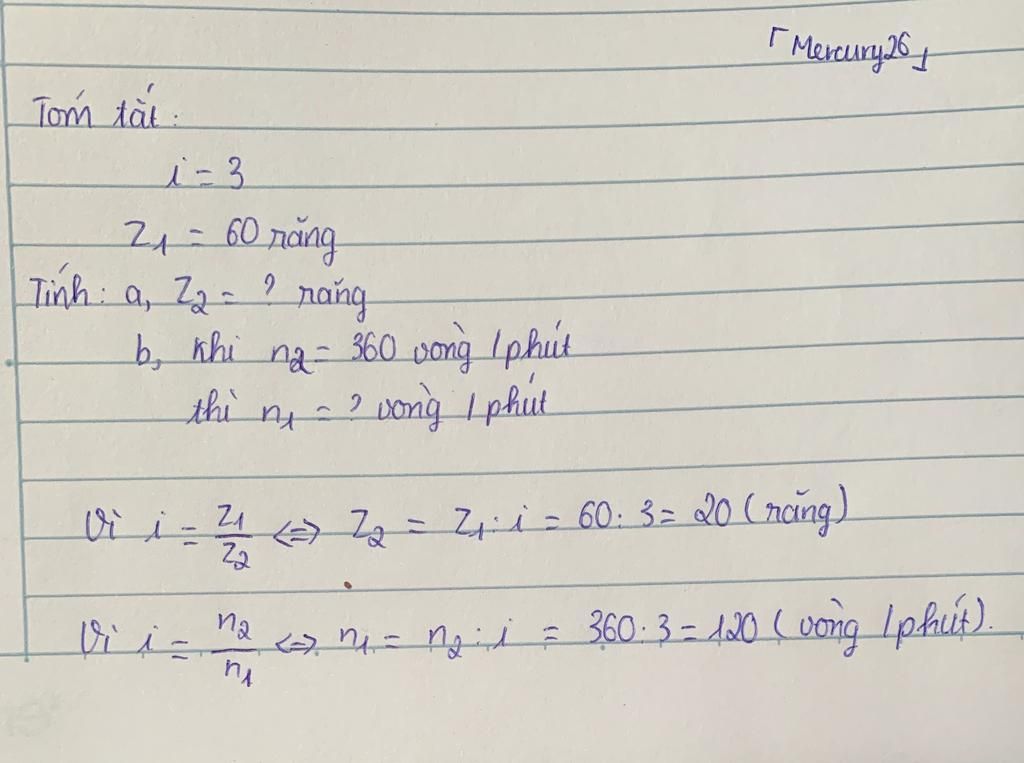 「Mercury26」
Tóm tắt:
i = 3
Z₁ = 60 răng
Tính: a, Z₂ = ? răng
b, khi n₂ = 360 vòng /phút
thì n₁ = ? vòng /phút
Vì i = Z₁/Z₂ ⇔ Z₂ = Z₁ : i = 60 : 3 = 20 (răng)
Vì i = n₂/n₁ ⇔ n₁ = n₂ : i = 360 : 3 = 120 (vòng /phút).